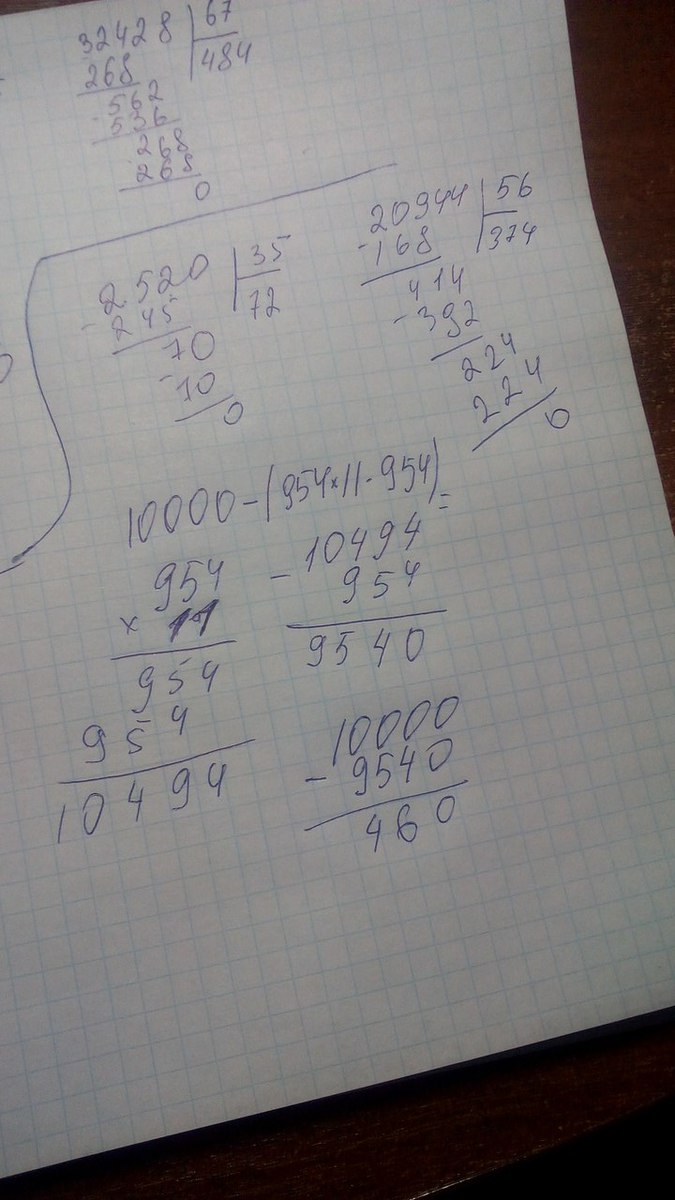 32428 | 67
268 | 484
- 562
536
268
268
0
2520 | 35
- 245 | 72
70
- 70
0
20944 | 56
- 168 | 374
414
- 392
224
224
0
10000-(954×11-954)=
954
× 11
954
954
10494
- 10494
954
9540
10000
- 9540
460